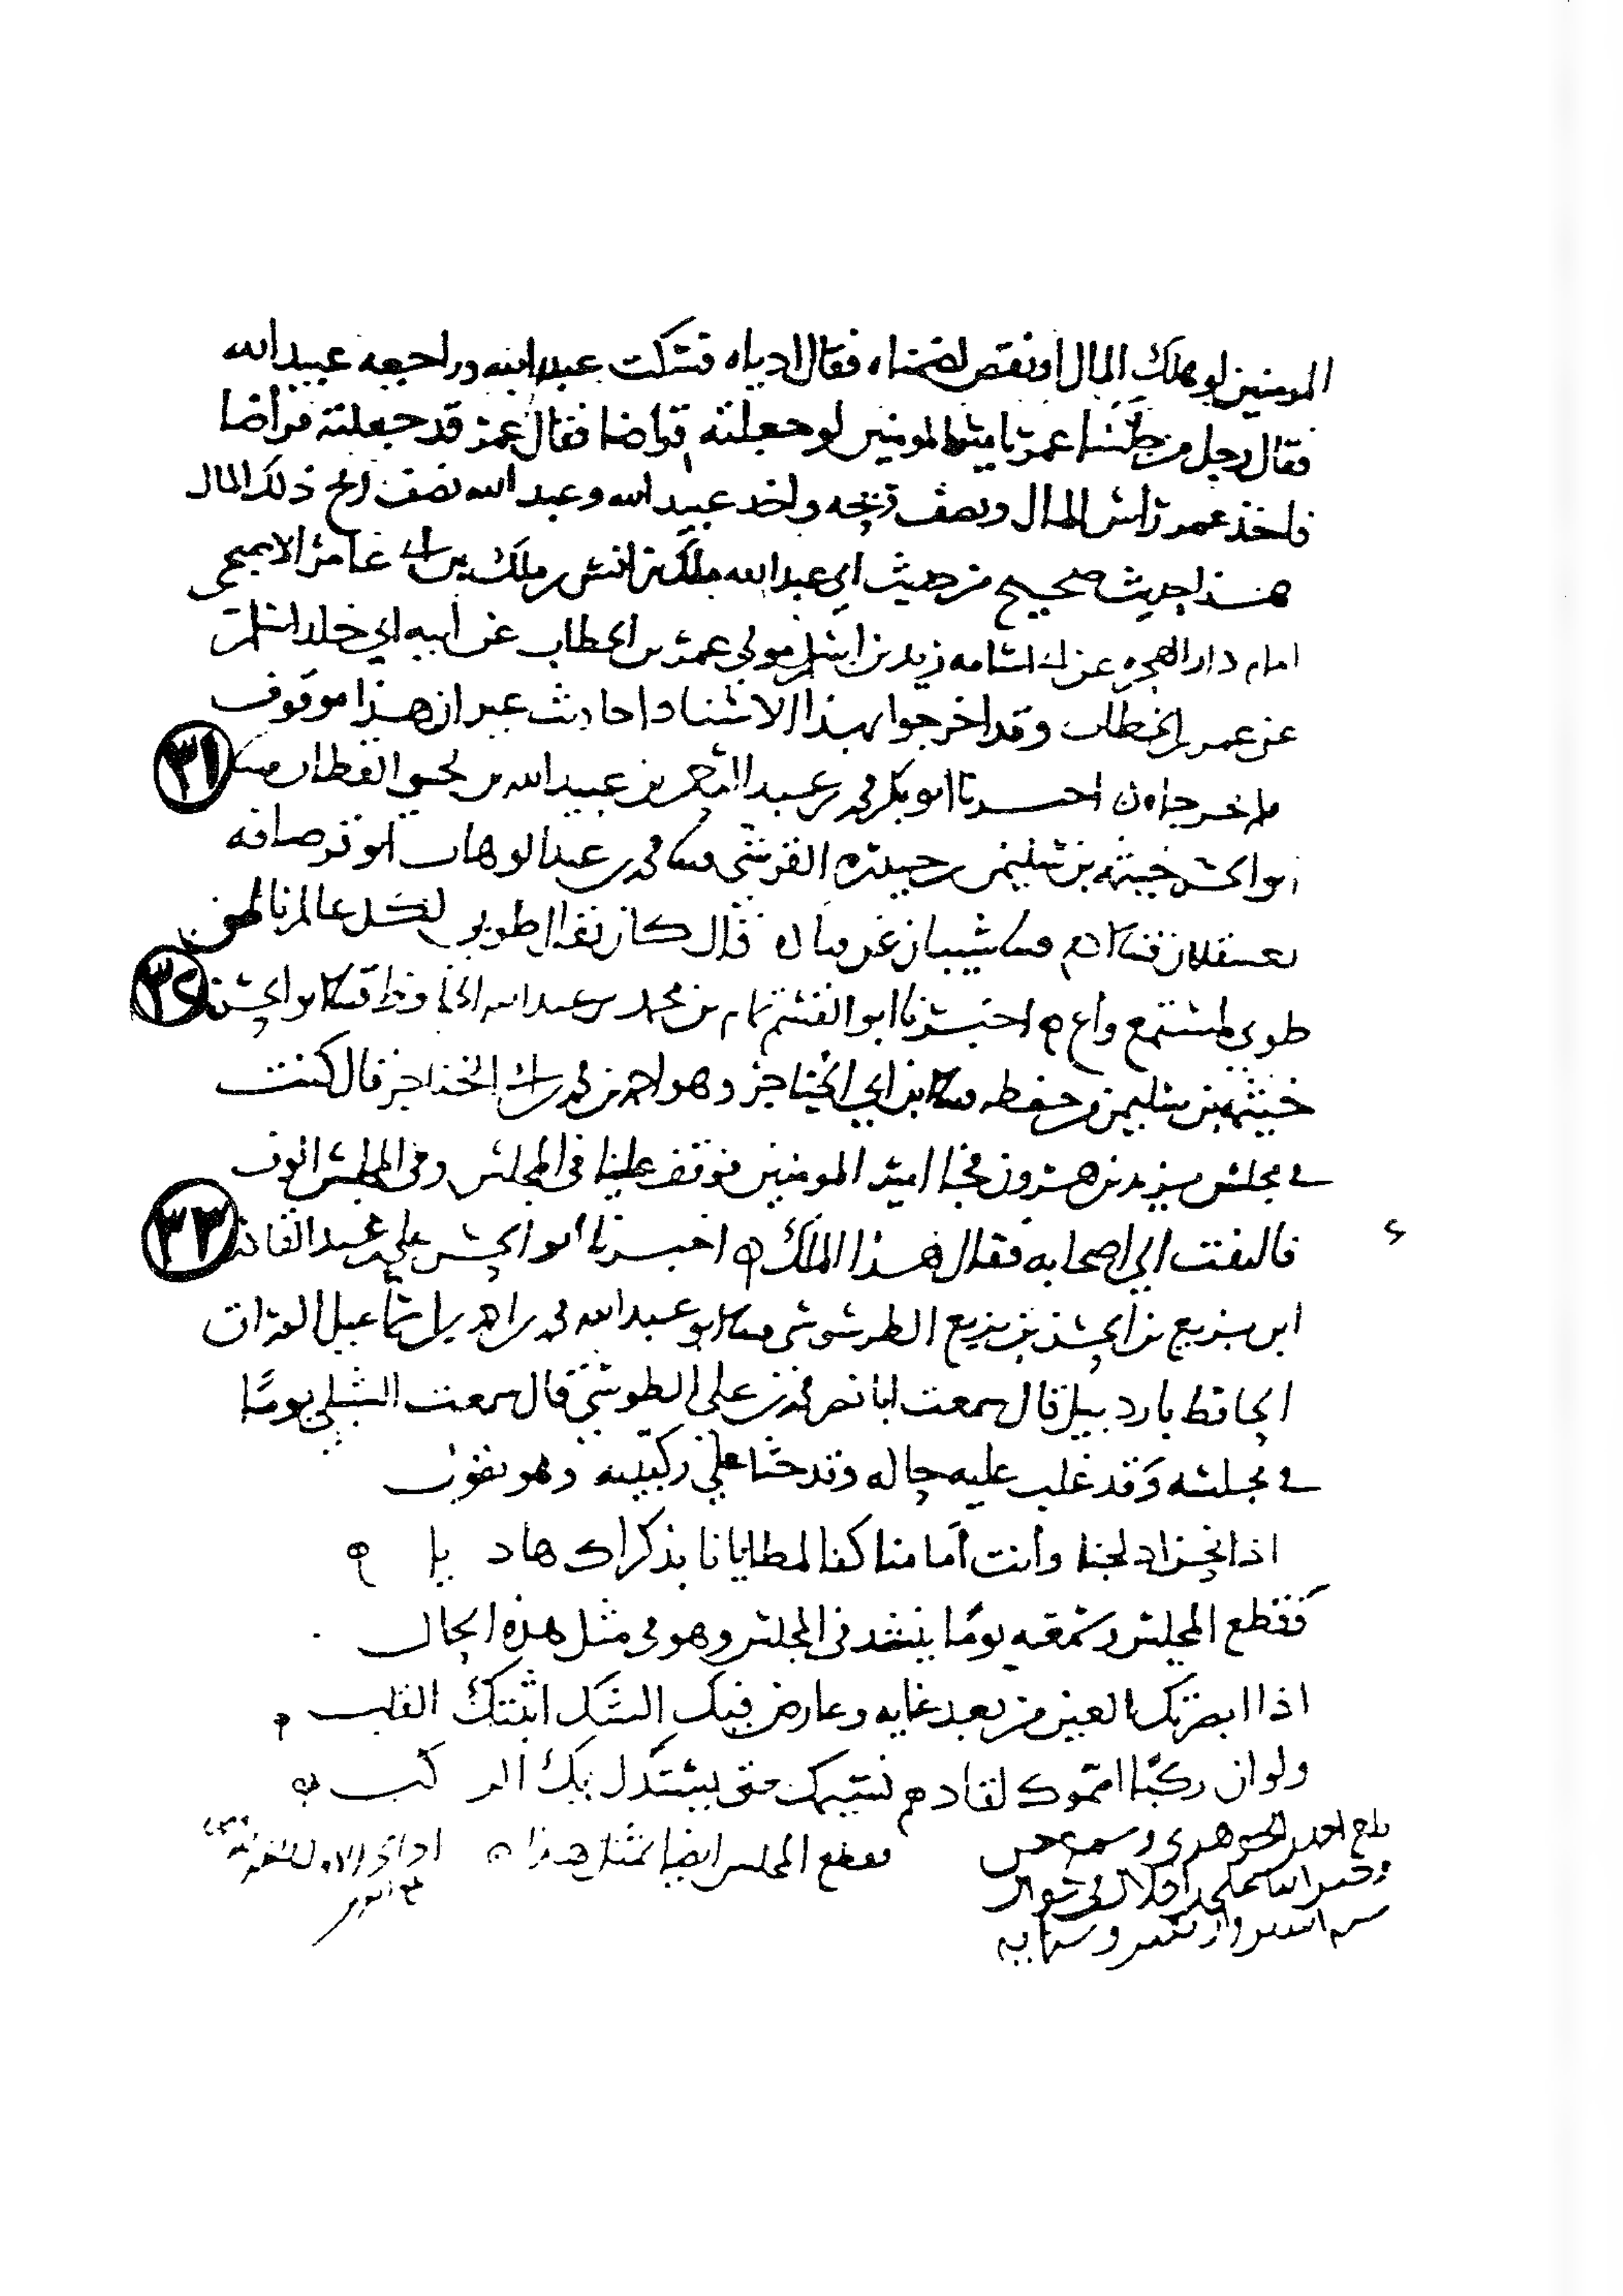 المومنين لو هلك المال او نقص لضمناه فقال ادياه فسكت عبد الله وراجعه عبيد الله
فقال رجل من جلسا عمر يا امير المومنين لو جعلته قراضا فقال عمر قد جعلته قراضا
فاخذ عمر راس المال ونصف ربحه واخذ عبيد الله وعبد الله نصف ربح ذلك المال
هذا حديث صحيح من حديث ابي عبد الله ملك بن انس بن ملك بن ابي عامر الاصبحي
امام دار الهجره عن ابي اسامه زيد بن اسلم مولي عمر بن الخطاب عن ابيه ابي خلد اسلم
عن عمر بن الخطاب وقد اخرجوا بهذا الاسناد احاديث غير ان هذا موقوف
لم يخرجاه اخبرنا ابو بكر محمد بن عبيد الله بن يحيي القطان ٣١
ابو الحسن خيثمه بن سليمن بن حيدره القرشي محمد بن عبد الوهاب ابو قرصافه
بعسقلان ادم شيبان عن قال كان يقال طوبي لكل عالم ناطق
طوبي لمستمع واع اخبرنا ابو القسم تمام بن محمد بن عبد الله الحافظ ابو الحسن ٣٢
خيثمه بن سليمن من حفظه ابن ابي الخناجر وهو احمد بن محمد بن ابي الخناجر قال كنت
في مجلس يزيد بن هرون فجا امير المومنين فوقف علينا في المجلس وفي المجلس الوف
فالتفت الي اصحابه فقال هذا الملك اخبرنا ابو الحسن علي بن عبد القادر ٣٣
ابن بزيع بن الحسن بن بزيع الطرسوسي ابو عبد الله محمد بن اسماعيل
الحافظ باردبيل قال سمعت ابا نصر محمد بن علي الطوسي قال سمعت الشبلي يوما
في مجلسه وقد غلب عليه حاله وقد جثا علي ركبتيه وهو يقول
اذا نحن ادلجنا وانت امامنا كفا لمطايانا بذكراك هاديا
فقطع المجلس وسمعته يوما ينشد في المجلس وهو في مثل هذه الحال
اذا ابصرتك العين من بعد غايه وعارض فيك الشك اثبتك القلب
ولو ان ركبا امموك لقادهم نسيمك حتي يستدل بك الركب
فقطع المجلس ايضا بمثل هذا